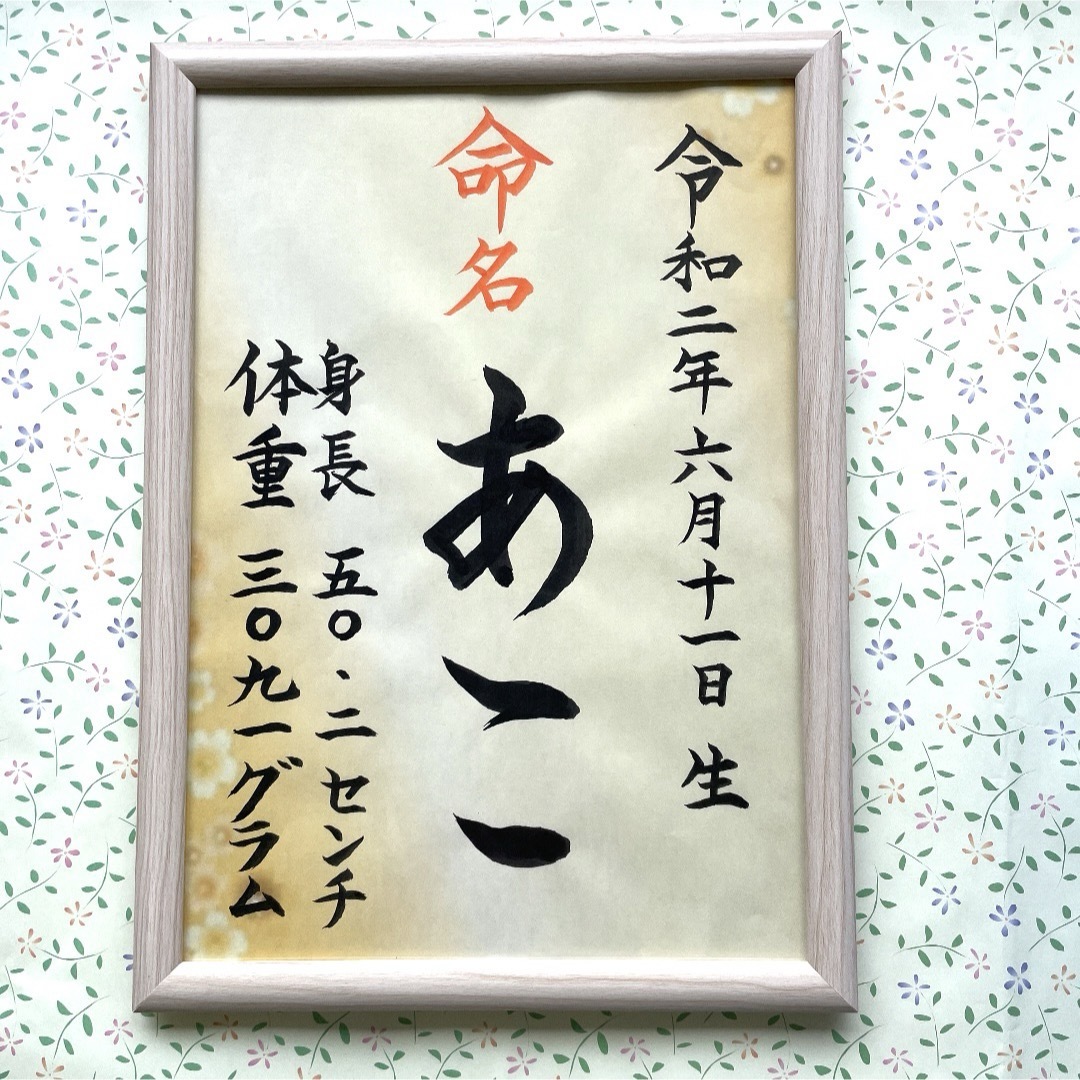 令和二年六月十一日 生
命名 あこ
身長 五〇.二センチ
体重 三〇九一グラム